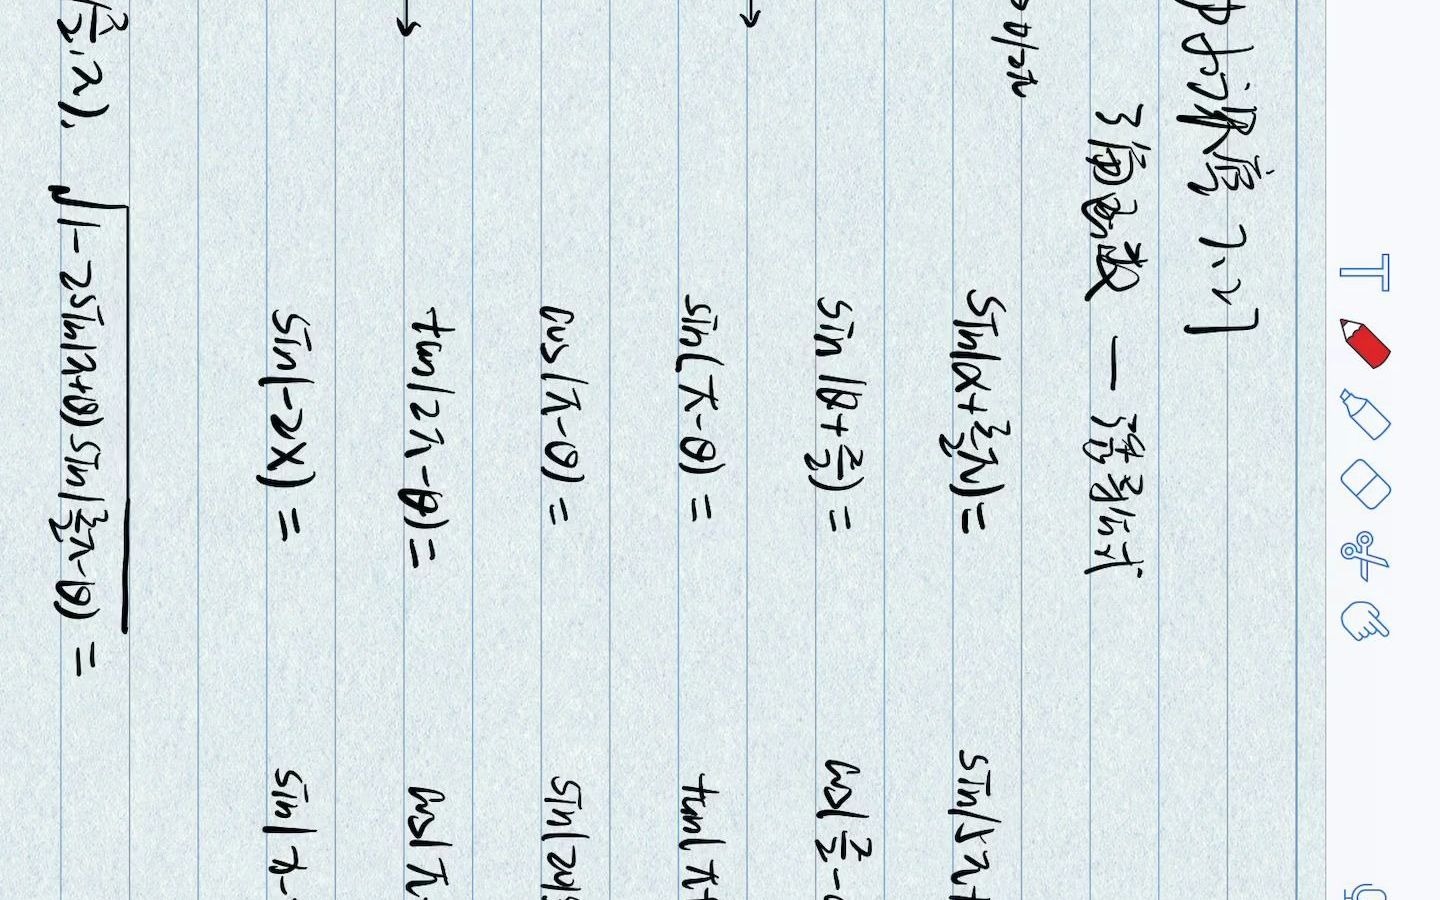 三角函数 — 诱导公式
sin(α+\frac{3}{2}π)= sin(5π+
sin(θ+\frac{π}{2})= cos(\frac{π}{2}-
sin(π-θ)= tan(π+
cos(π-θ)= sin(
tan(2π-θ)= cos(π-
sin(-2x)= sin(π-
\frac{π}{2},π). \sqrt{1-2sin(π+θ)sin(\frac{3}{2}π-θ)}=